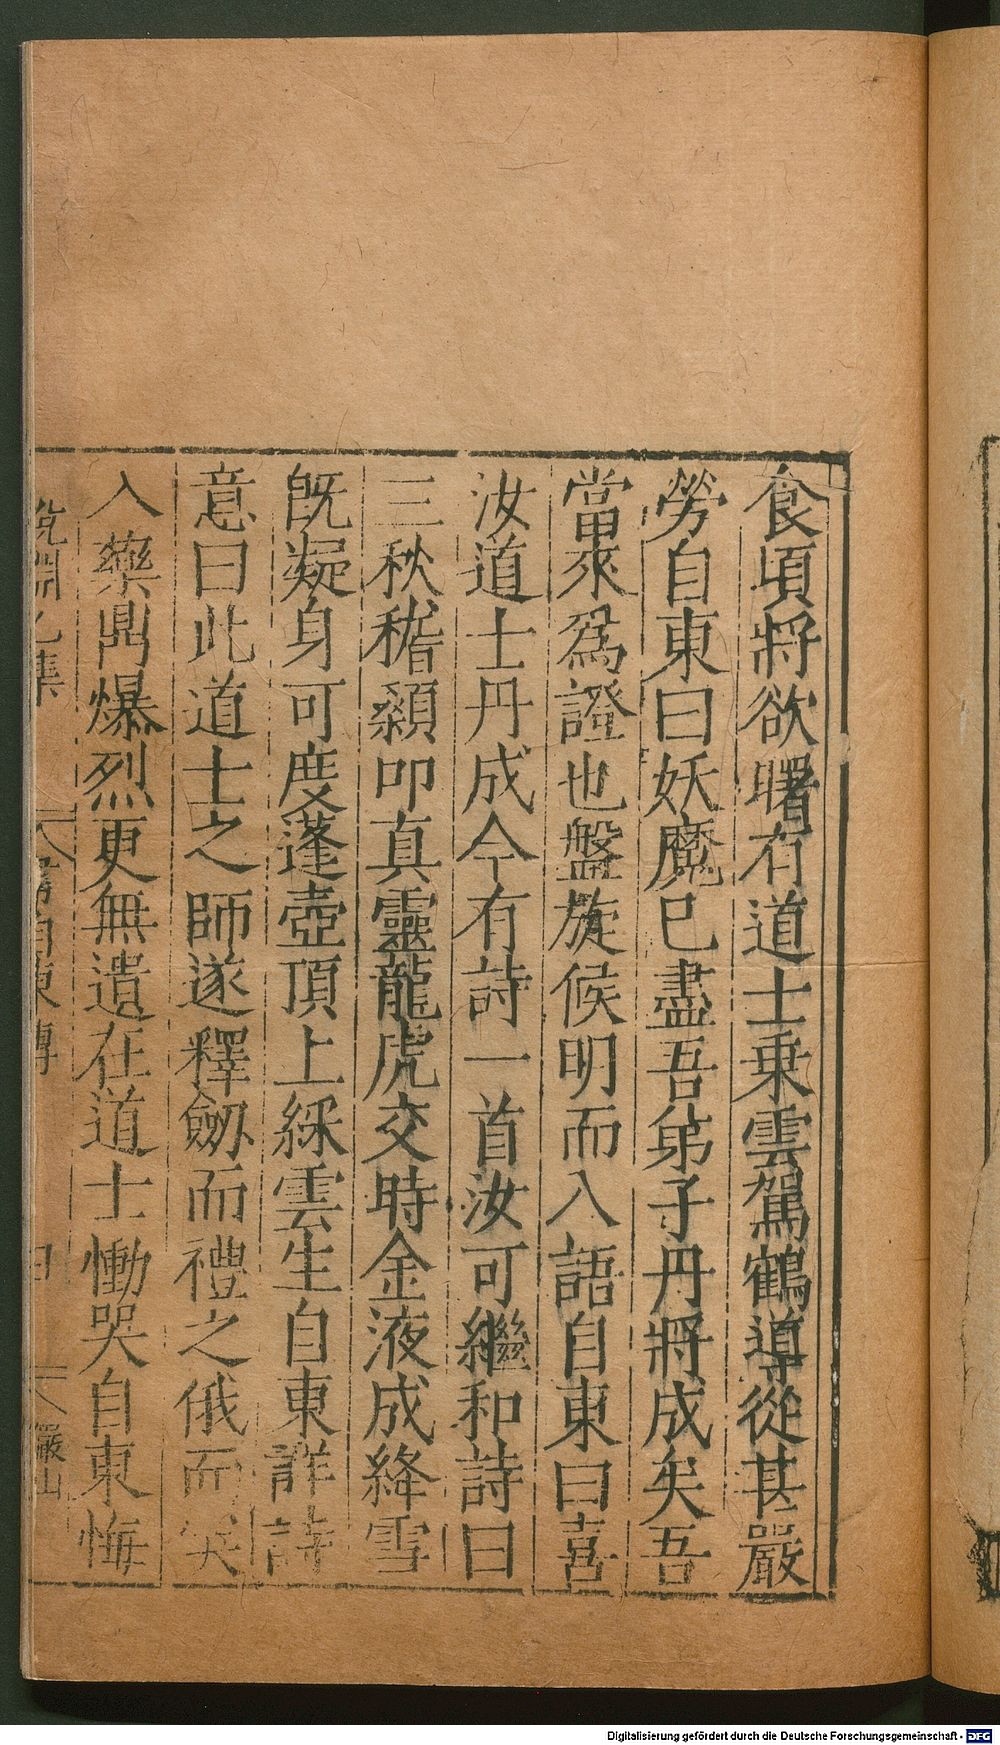 食頃將欲曙有道士乗雲駕鶴導從甚嚴
勞自東曰妖魔已盡吾弟子丹將成矣吾
當來爲證也盤旋候明而入語自東曰喜
汝道士丹成今有詩一首汝可繼和詩曰
三秋稽顙叩真靈龍虎交時金液成絳雪
旣凝身可度蓬壺頂上綵雲生自東詳詩
意曰此道士之師遂釋劒而禮之俄而突
入藥鼎爆烈更無遺在道士慟哭自東悔
説淵乙集 韋自東傳 四 儼山
Digitalisierung gefördert durch die Deutsche Forschungsgemeinschaft - DFG